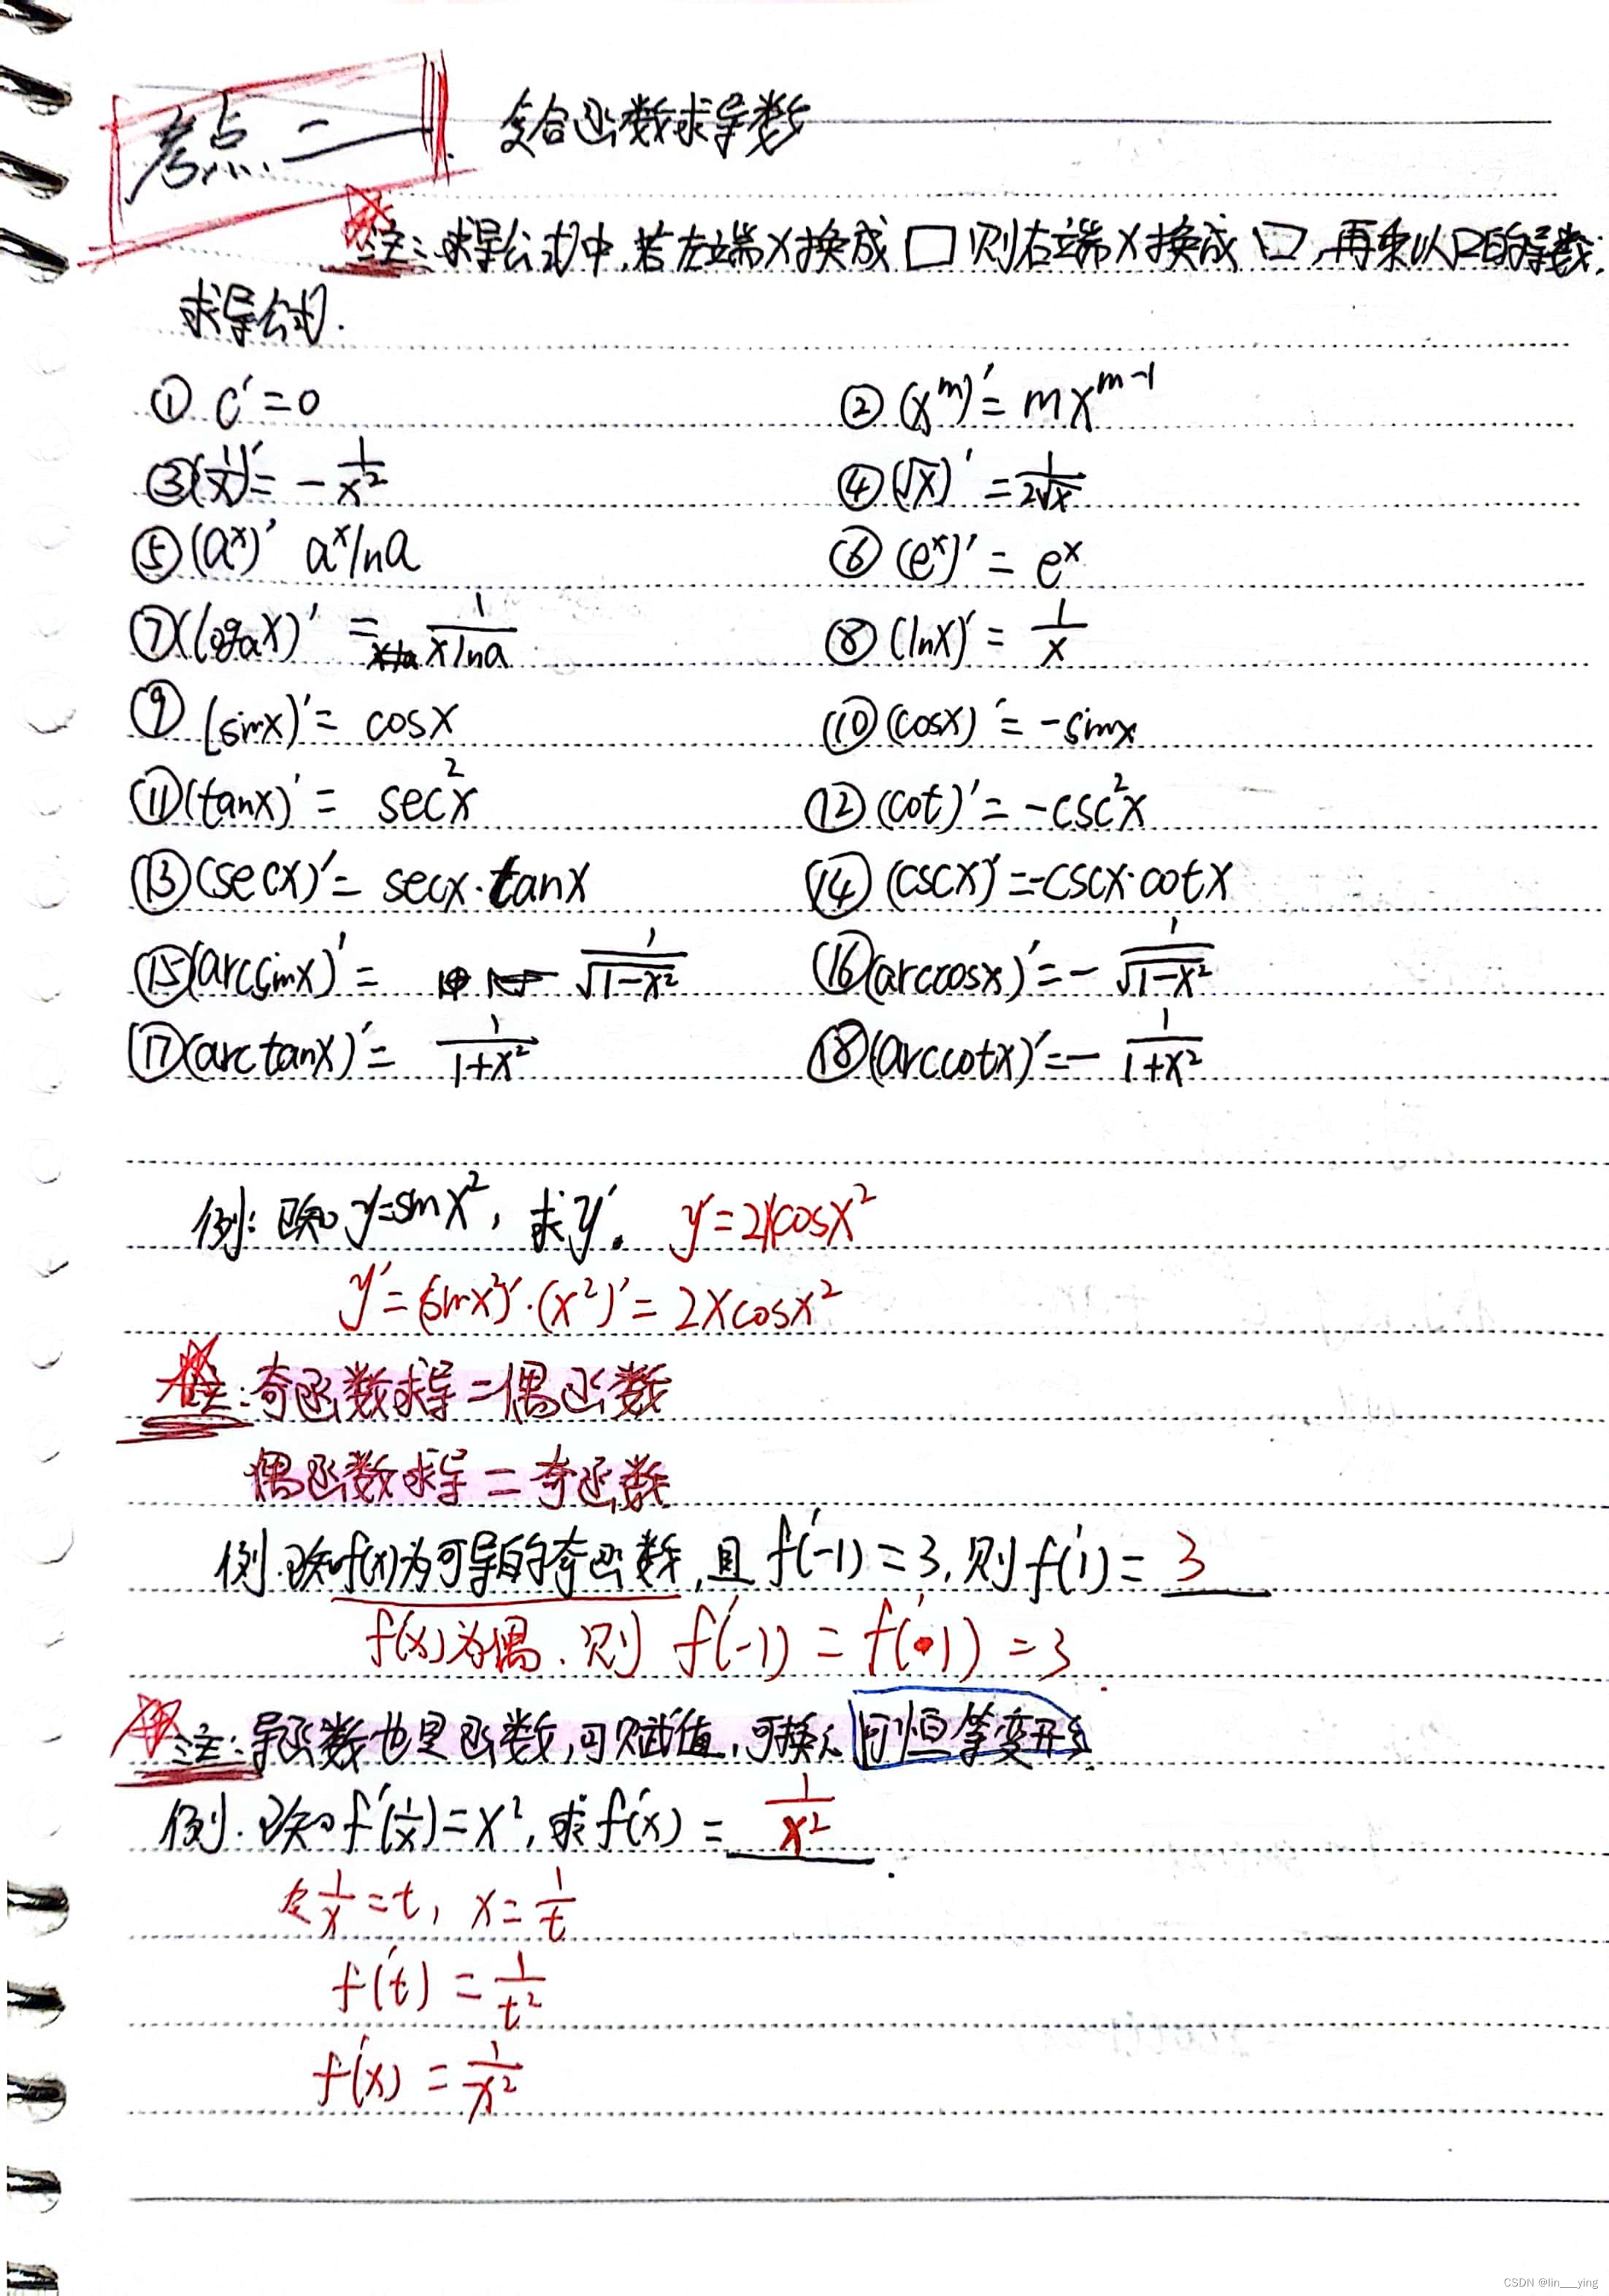 考点二 复合函数求导数
注:求导公式中,若左端X换成 □ 则右端X换成 □,再乘以□的导数.
求导公式.
① C′=0 ② (x^m)′= mx^{m-1}
③ (1/x)′= -1/x² ④ (√x)′ = 1/(2√x)
⑤ (a^x)′ a^x lna ⑥ (e^x)′ = e^x
⑦ (log_a x)′ = 1/(xlna) ⑧ (lnx)′ = 1/x
⑨ (sinx)′= cosx ⑩ (cosx)′= -sinx
⑪ (tanx)′ = sec²x ⑫ (cot)′= -csc²x
⑬ (secx)′= secx·tanx ⑭ (cscx)′=-cscx·cotx
⑮ (arcsinx)′ = 1/√(1-x²) ⑯ (arccosx)′= -1/√(1-x²)
⑰ (arctanx)′= 1/(1+x²) ⑱ (arccotx)′= -1/(1+x²)
例: 已知 y=sinx², 求y′. y′=2xcosx²
y′=(sinx²)′·(x²)′= 2xcosx²
注: 奇函数求导=偶函数
偶函数求导=奇函数
例.已知f(x)为可导的奇函数,且 f′(-1)=3,则f′(1)= 3
f′(x)为偶.则 f′(-1) = f′(1) =3
注: 导函数也是函数,可赋值,可换元 可恒等变形.
例. 已知 f′(1/x)=x², 求 f′(x) = 1/x².
令1/x=t, x=1/t
f′(t) = 1/t²
f′(x) = 1/x²
CSDN @lin___ying